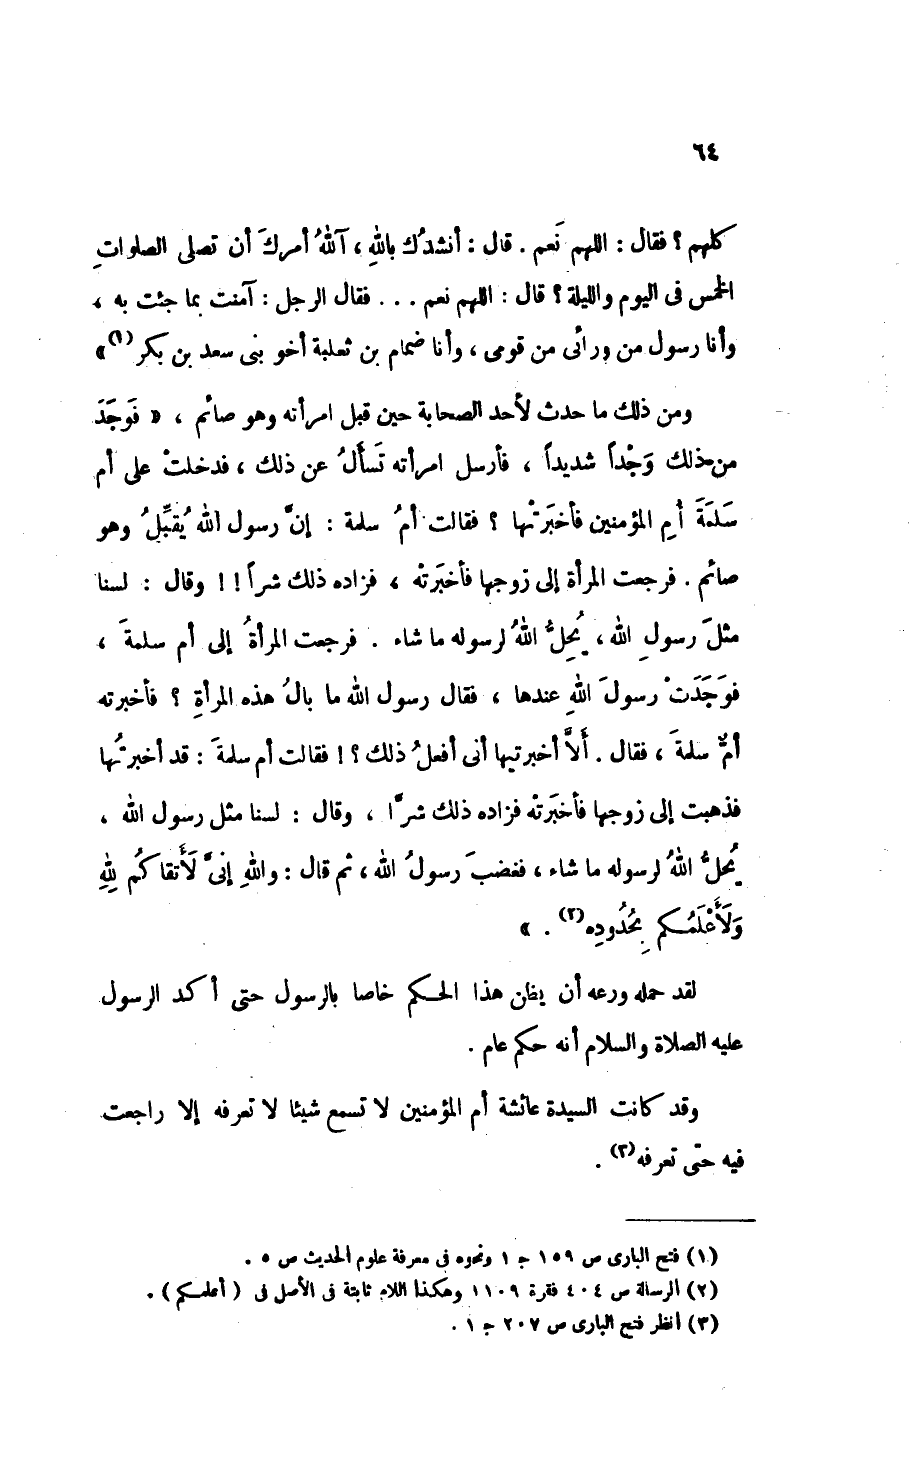 ٦٤
كلهم ؟ فقال : اللهم نَعم . قال : أنشدُك باللهِ ، آللهُ أمركَ أن تصلى الصلواتِ
الخمس فى اليوم والليلة ؟ قال : اللهم نعم ... فقال الرجل : آمنت بما جئت به ،
وأنا رسول من ورائى من قومى ، وأنا ضمام بن ثعلبة أخو بنى سعد بن بكر (١) »
ومن ذلك ما حدث لأحد الصحابة حين قبل امرأته وهو صائم ، « فَوَجَدَ
من ذلك وَجْداً شديداً ، فأرسل امرأته تَسألُ عن ذلك ، فدخلتْ على أم
سَلمَةَ أُمِ المؤمنين فأخبَرتْها ؟ فقالت أمُ سلمة : إنَّ رسول اللهُ يُقبِّلُ وهو
صائم . فرجعت المرأة إلى زوجها فأخبَرتْه ، فزاده ذلك شراً !! وقال : لسنا
مثلَ رسولِ الله ، يُحِلُّ اللهُ لرسوله ما شاء . فرجعت المرأةُ إلى أم سلمةَ ،
فوَجَدَتْ رسولَ اللهِ عندها ، فقال رسول الله ما بالُ هذه المرأةِ ؟ فأخبرته
أمُّ سلمةَ ، فقال . أَلاَّ أخبرتيها أنى أفعلُ ذلك ؟ ! فقالت أم سلمةَ : قد أخبرتُها
فذهبت إلى زوجها فأخبَرتْه فزاده ذلك شرًّا ، وقال : لسنا مثل رسول الله ،
يُحلُّ اللهُ لرسوله ما شاء ، فغضبَ رسولُ الله ، ثم قال : واللهِ إنىَّ لَأَتقاكُم للهِ
وَلَأَعْلَمُكم بِحُدُودِه (٢) . »
لقد حمله ورعه أن يظن هذا الحكم خاصا بالرسول حتى أكد الرسول
عليه الصلاة والسلام أنه حكم عام .
وقد كانت السيدة عائشة أم المؤمنين لا تسمع شيئا لا تعرفه إلا راجعت
فيه حتّى تعرفه (٣) .
(١) فتح البارى ص ١٥٩ جـ ١ ونحوه فى معرفة علوم الحديث ص ٥ .
(٢) الرسالة ص ٤٠٤ فقرة ١١٠٩ وهكذا اللام ثابتة فى الأصل فى ( أعلمكم ) .
(٣) أنظر فتح البارى ص ٢٠٧ جـ ١ .